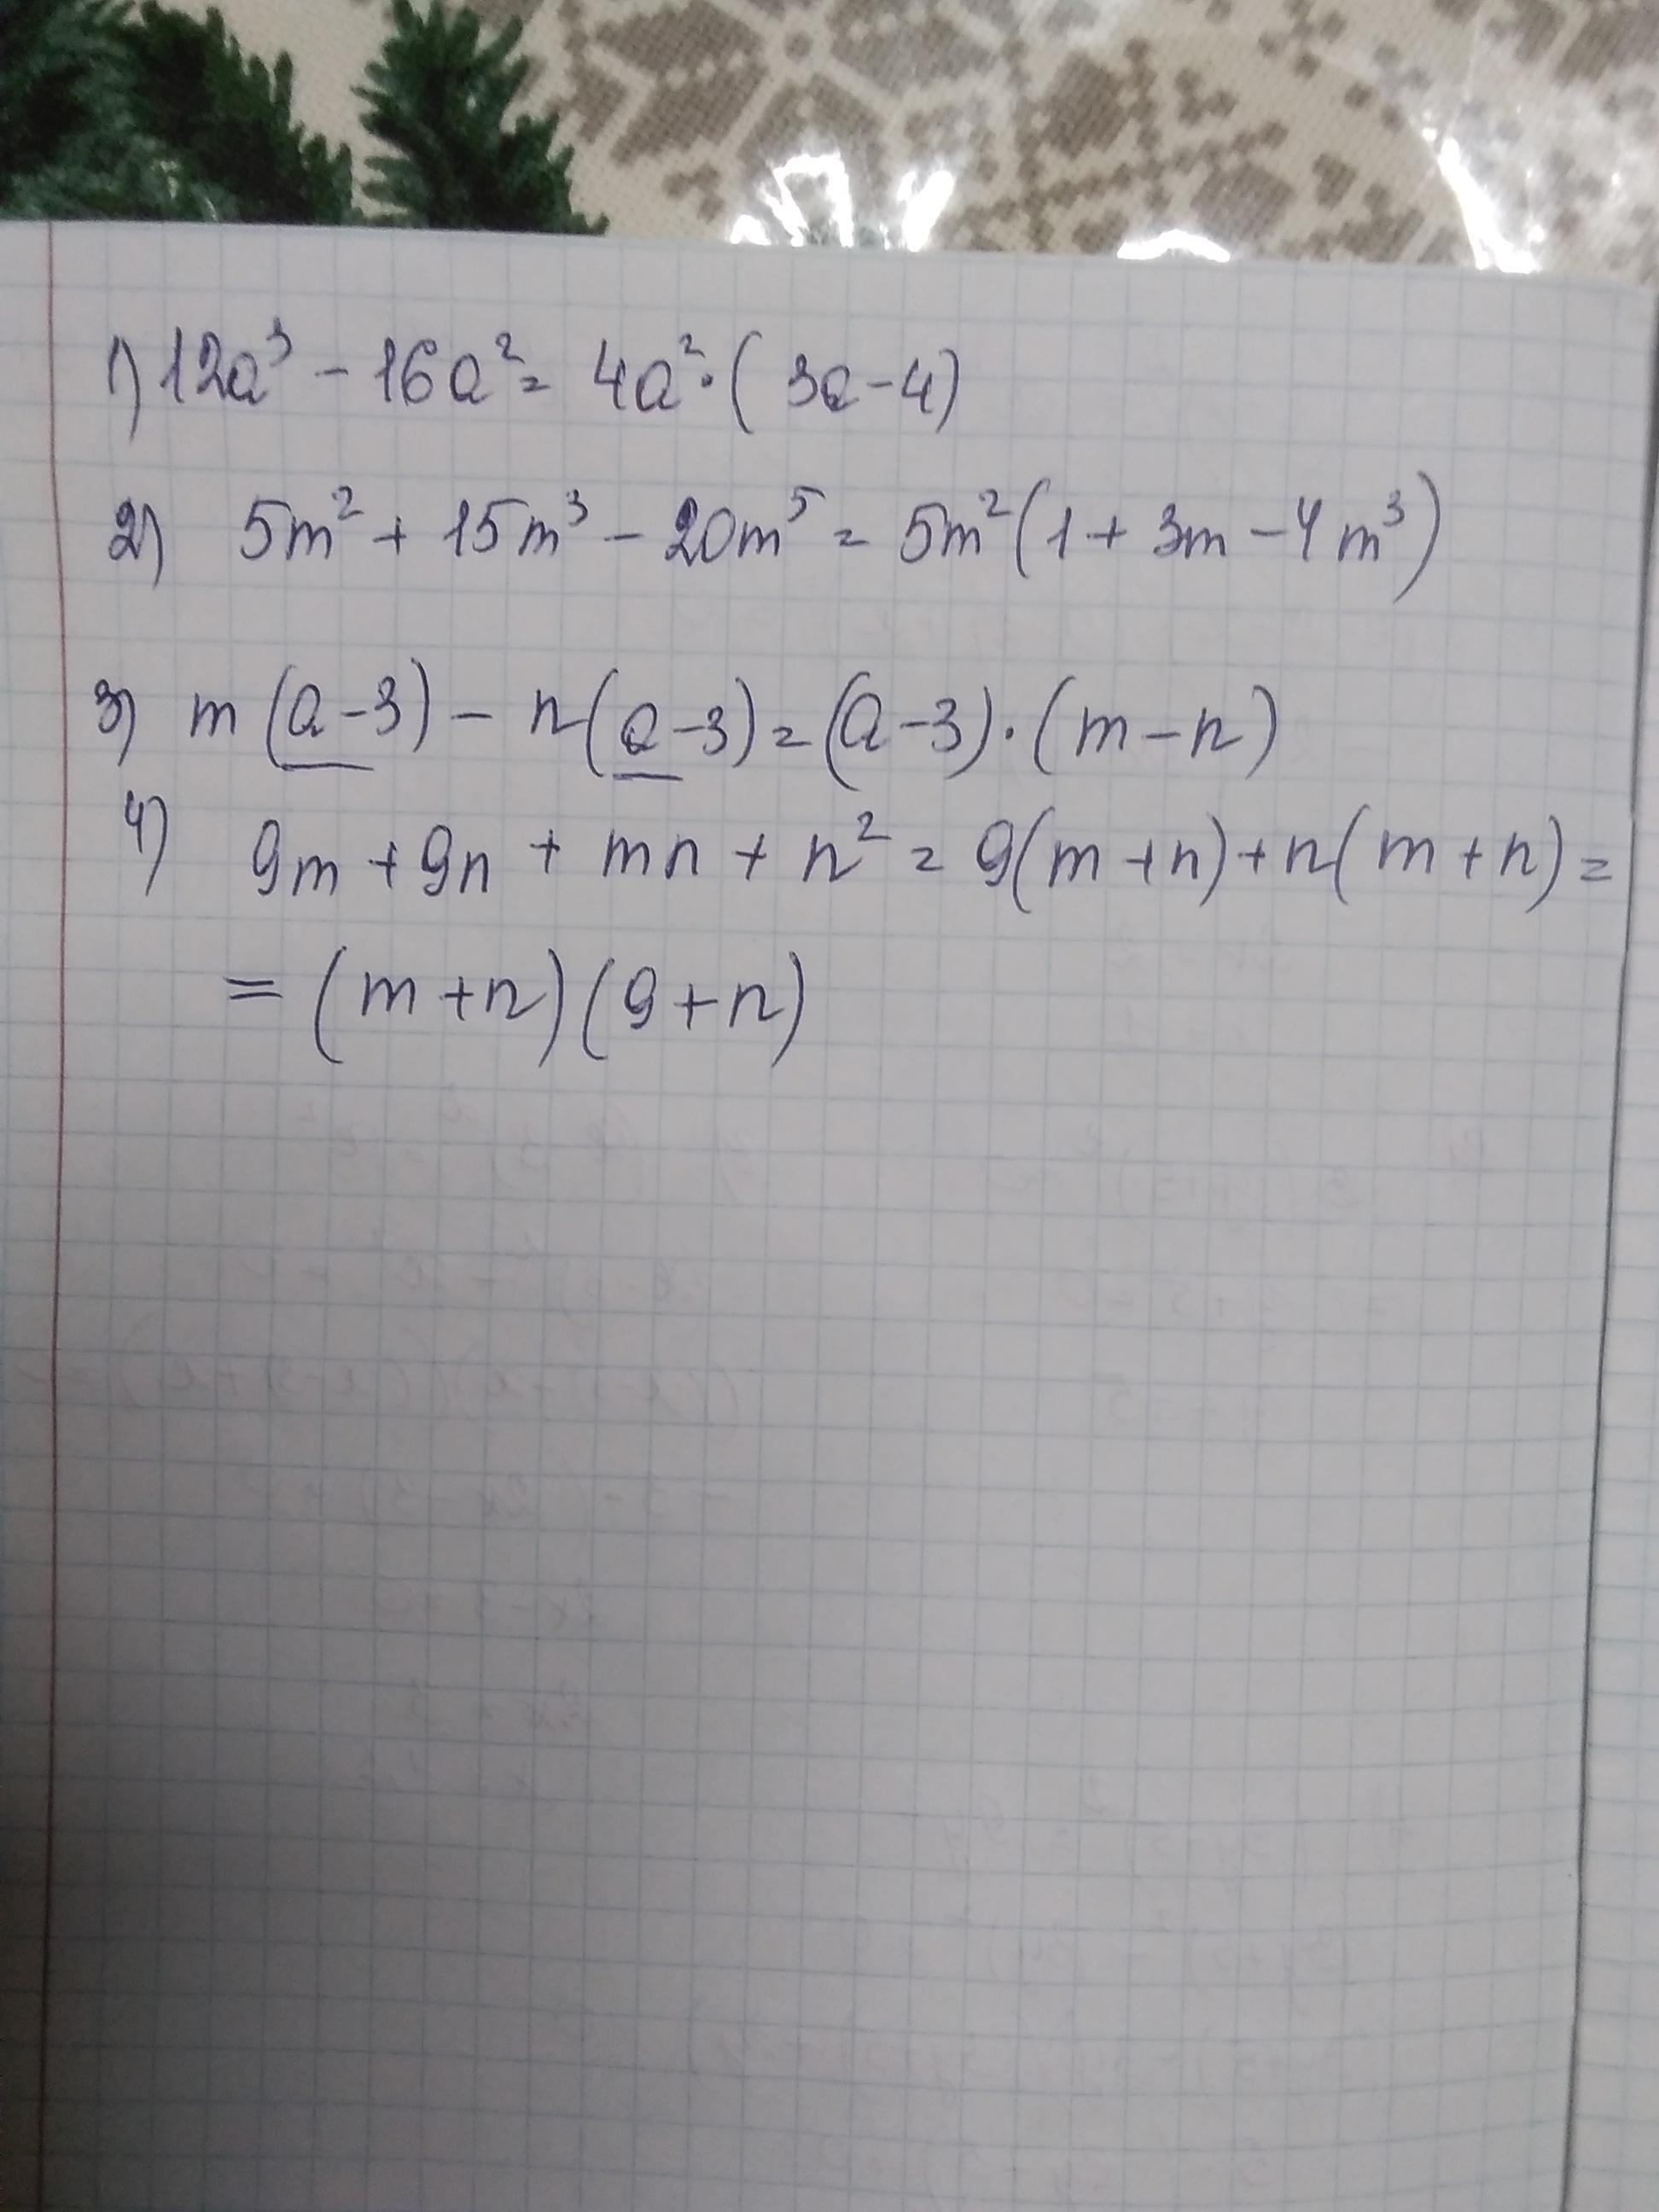 1) 12a³ - 16a² = 4a² · (3a - 4)
2) 5m² + 15m³ - 20m⁵ = 5m² (1 + 3m - 4m³)
3) m (a - 3) - n (a - 3) = (a - 3) · (m - n)
4) 9m + 9n + mn + n² = 9(m + n) + n(m + n) =
= (m + n) (9 + n)